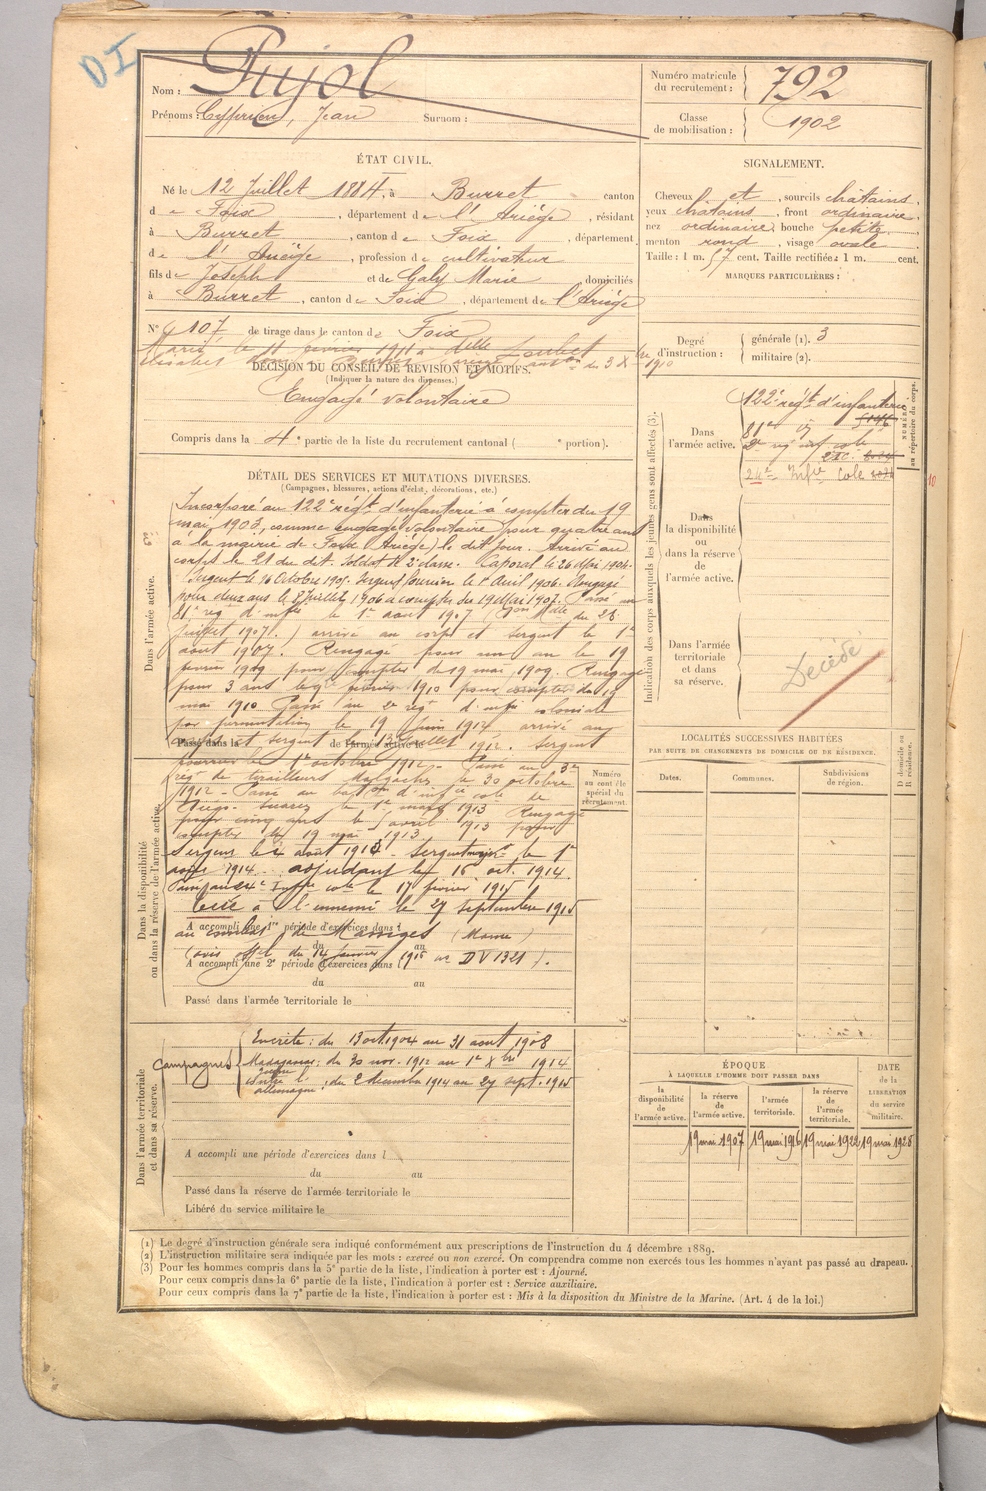 DI
Nom : Pujol
Prénoms : Cyprien, Jean Surnom :
Numéro matricule du recrutement : 792
Classe de mobilisation : 1902
ÉTAT CIVIL.
Né le 12 Juillet 1884, à Burret canton
de Foix, département de l'Ariège, résidant
à Burret, canton de Foix, département
de l'Ariège, profession de cultivateur
fils de Joseph et de Galy Marie domiciliés
à Burret, canton de Foix, département de l'Ariège
SIGNALEMENT.
Cheveux et, sourcils châtains,
yeux châtains, front ordinaire,
nez ordinaire, bouche petite,
menton rond, visage ovale
Taille : 1 m. 57 cent. Taille rectifiée : 1 m. cent.
MARQUES PARTICULIÈRES :
N° 107 de tirage dans le canton de Foix
Marié le 11 février 1911 à delle Loubet
du 3 Xbre 1910
DÉCISION DU CONSEIL DE RÉVISION ET MOTIFS.
(Indiquer la nature des dispenses.)
Engagé volontaire
Compris dans la 4e partie de la liste du recrutement cantonal ( e portion).
Degré d'instruction :
générale (1). 3
militaire (2).
DÉTAIL DES SERVICES ET MUTATIONS DIVERSES.
(Campagnes, blessures, actions d'éclat, décorations, etc.)
Dans l'armée active.
Incorporé au 122e régt d'infanterie à compter du 19
mai 1903, comme engagé volontaire pour quatre ans
à la mairie de Foix (Ariège) le dit jour. Arrivé au
corps le 21 du dit. Soldat de 2e classe. Caporal le 26 Mai 1904.
Sergent le 16 Octobre 1905. Sergent fourrier le 1er Avril 1906. Rengagé
pour deux ans le 8 Juillet 1906 à compter du 19 Mai 1907. Passé au
81e régt d'infie le 1er août 1907 (Don Mlle du 23
Juillet 1907.) arrivé au corps et sergent le 1er
août 1907. Rengagé pour un an le 19
février 1909 pour compter du 19 mai 1909. Rengagé
pour 3 ans le février 1910 pour compter du 19
mai 1910 Passé au 2e régt d'infie coloniale
par permutation le 19 Juin 1912, arrivé au
corps et sergent le 13 Juillet 1912. Sergent
Passé dans la de l'armée active le
fourrier le 1er octobre 1912 - Passé au 3e
régt de tirailleurs Malgaches le 30 octobre
1912 - Passé au baton d'infie cole de
Diégo-Suarez le 1er mars 1913 Rengagé
pour cinq ans le avril 1913 pour
compter du 19 mai 1913
Sergent le 4 août 1913. Sergent major le 1er
août 1914. adjudant le 16 oct. 1914.
Passé au 24e Infie cole le 17 février 1915
Tué à l'ennemi le 27 septembre 1915
au combat de Massiges (Marne)
(avis offel du 14 janvier 1916 n° DV 1321).
Dans la disponibilité ou dans la réserve de l'armée active.
A accompli une 1re période d'exercices dans l
du au
A accompli une 2e période d'exercices dans l
du au
Passé dans l'armée territoriale le
Campagnes
En crète : du 13 oct. 1904 au 31 août 1908
Madagascar : du 30 nov. 1912 au 1er Xbre 1914
Contre l'allemagne : du 2 décembre 1914 au 27 sept. 1915
Dans l'armée territoriale et dans sa réserve.
A accompli une période d'exercices dans l
du au
Passé dans la réserve de l'armée territoriale le
Libéré du service militaire le
Numéro au contrôle spécial du recrutement.
Indication des corps auxquels les jeunes gens sont affectés (3).
NUMÉRO au répertoire du corps.
Dans l'armée active.
122e régt d'infanterie
81e id
2e régt inf cole
24e Infie Cole
10
Dans la disponibilité ou dans la réserve de l'armée active.
Dans l'armée territoriale et dans sa réserve.
Décédé
LOCALITÉS SUCCESSIVES HABITÉES
PAR SUITE DE CHANGEMENTS DE DOMICILE OU DE RÉSIDENCE.
Dates. Communes. Subdivisions de région. D domicile ou R résidence.
ÉPOQUE
À LAQUELLE L'HOMME DOIT PASSER DANS
la disponibilité de l'armée active.
la réserve de l'armée active.
l'armée territoriale.
la réserve de l'armée territoriale.
DATE de la LIBÉRATION du service militaire.
19 mai 1907 19 mai 1916 19 mai 1922 19 mai 1928
(1) Le degré d'instruction générale sera indiqué conformément aux prescriptions de l'instruction du 4 décembre 1889.
(2) L'instruction militaire sera indiquée par les mots : exercé ou non exercé. On comprendra comme non exercés tous les hommes n'ayant pas passé au drapeau.
(3) Pour les hommes compris dans la 5e partie de la liste, l'indication à porter est : Ajourné.
Pour ceux compris dans la 6e partie de la liste, l'indication à porter est : Service auxiliaire.
Pour ceux compris dans la 7e partie de la liste, l'indication à porter est : Mis à la disposition du Ministre de la Marine. (Art. 4 de la loi.)